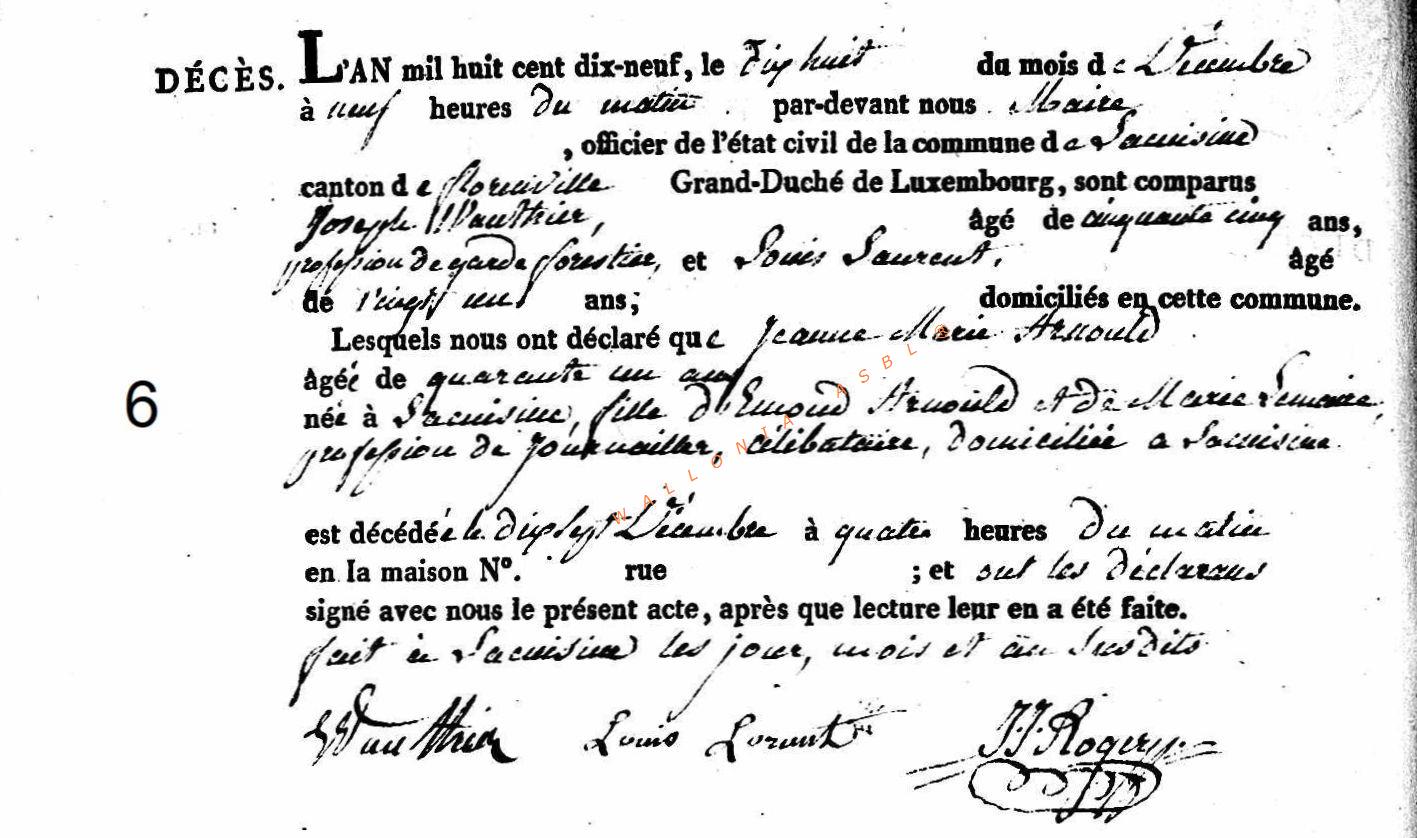 DÉCÈS. L'AN mil huit cent dix-neuf, le dix huit du mois de Décembre
à neuf heures du matin . par-devant nous . Maire
, officier de l'état civil de la commune de Lacuisine
canton de florenville Grand-Duché de Luxembourg, sont comparus
Joseph Wauthier, âgé de cinquante cinq ans,
profession de garde forestier, et Louis Laurent, âgé
de vingt un ans; domiciliés en cette commune.
Lesquels nous ont déclaré que Jeanne Marie Arnould
âgéé de quarante un ans
née à Lacuisine, fille d'Emond Arnould et de Marie Lemaire,
6
profession de Journailler, célibataire, domiciliée a Lacuisine.
est décédée le dix sept Décembre à quatre heures du matin
en la maison N°. rue ; et ont les déclarans
signé avec nous le présent acte, après que lecture leur en a été faite.
fait à Lacuisine les jour, mois et an susdits
Wauthier Louis Lorent J.J. Rogery
WALLONIA ASBL ©